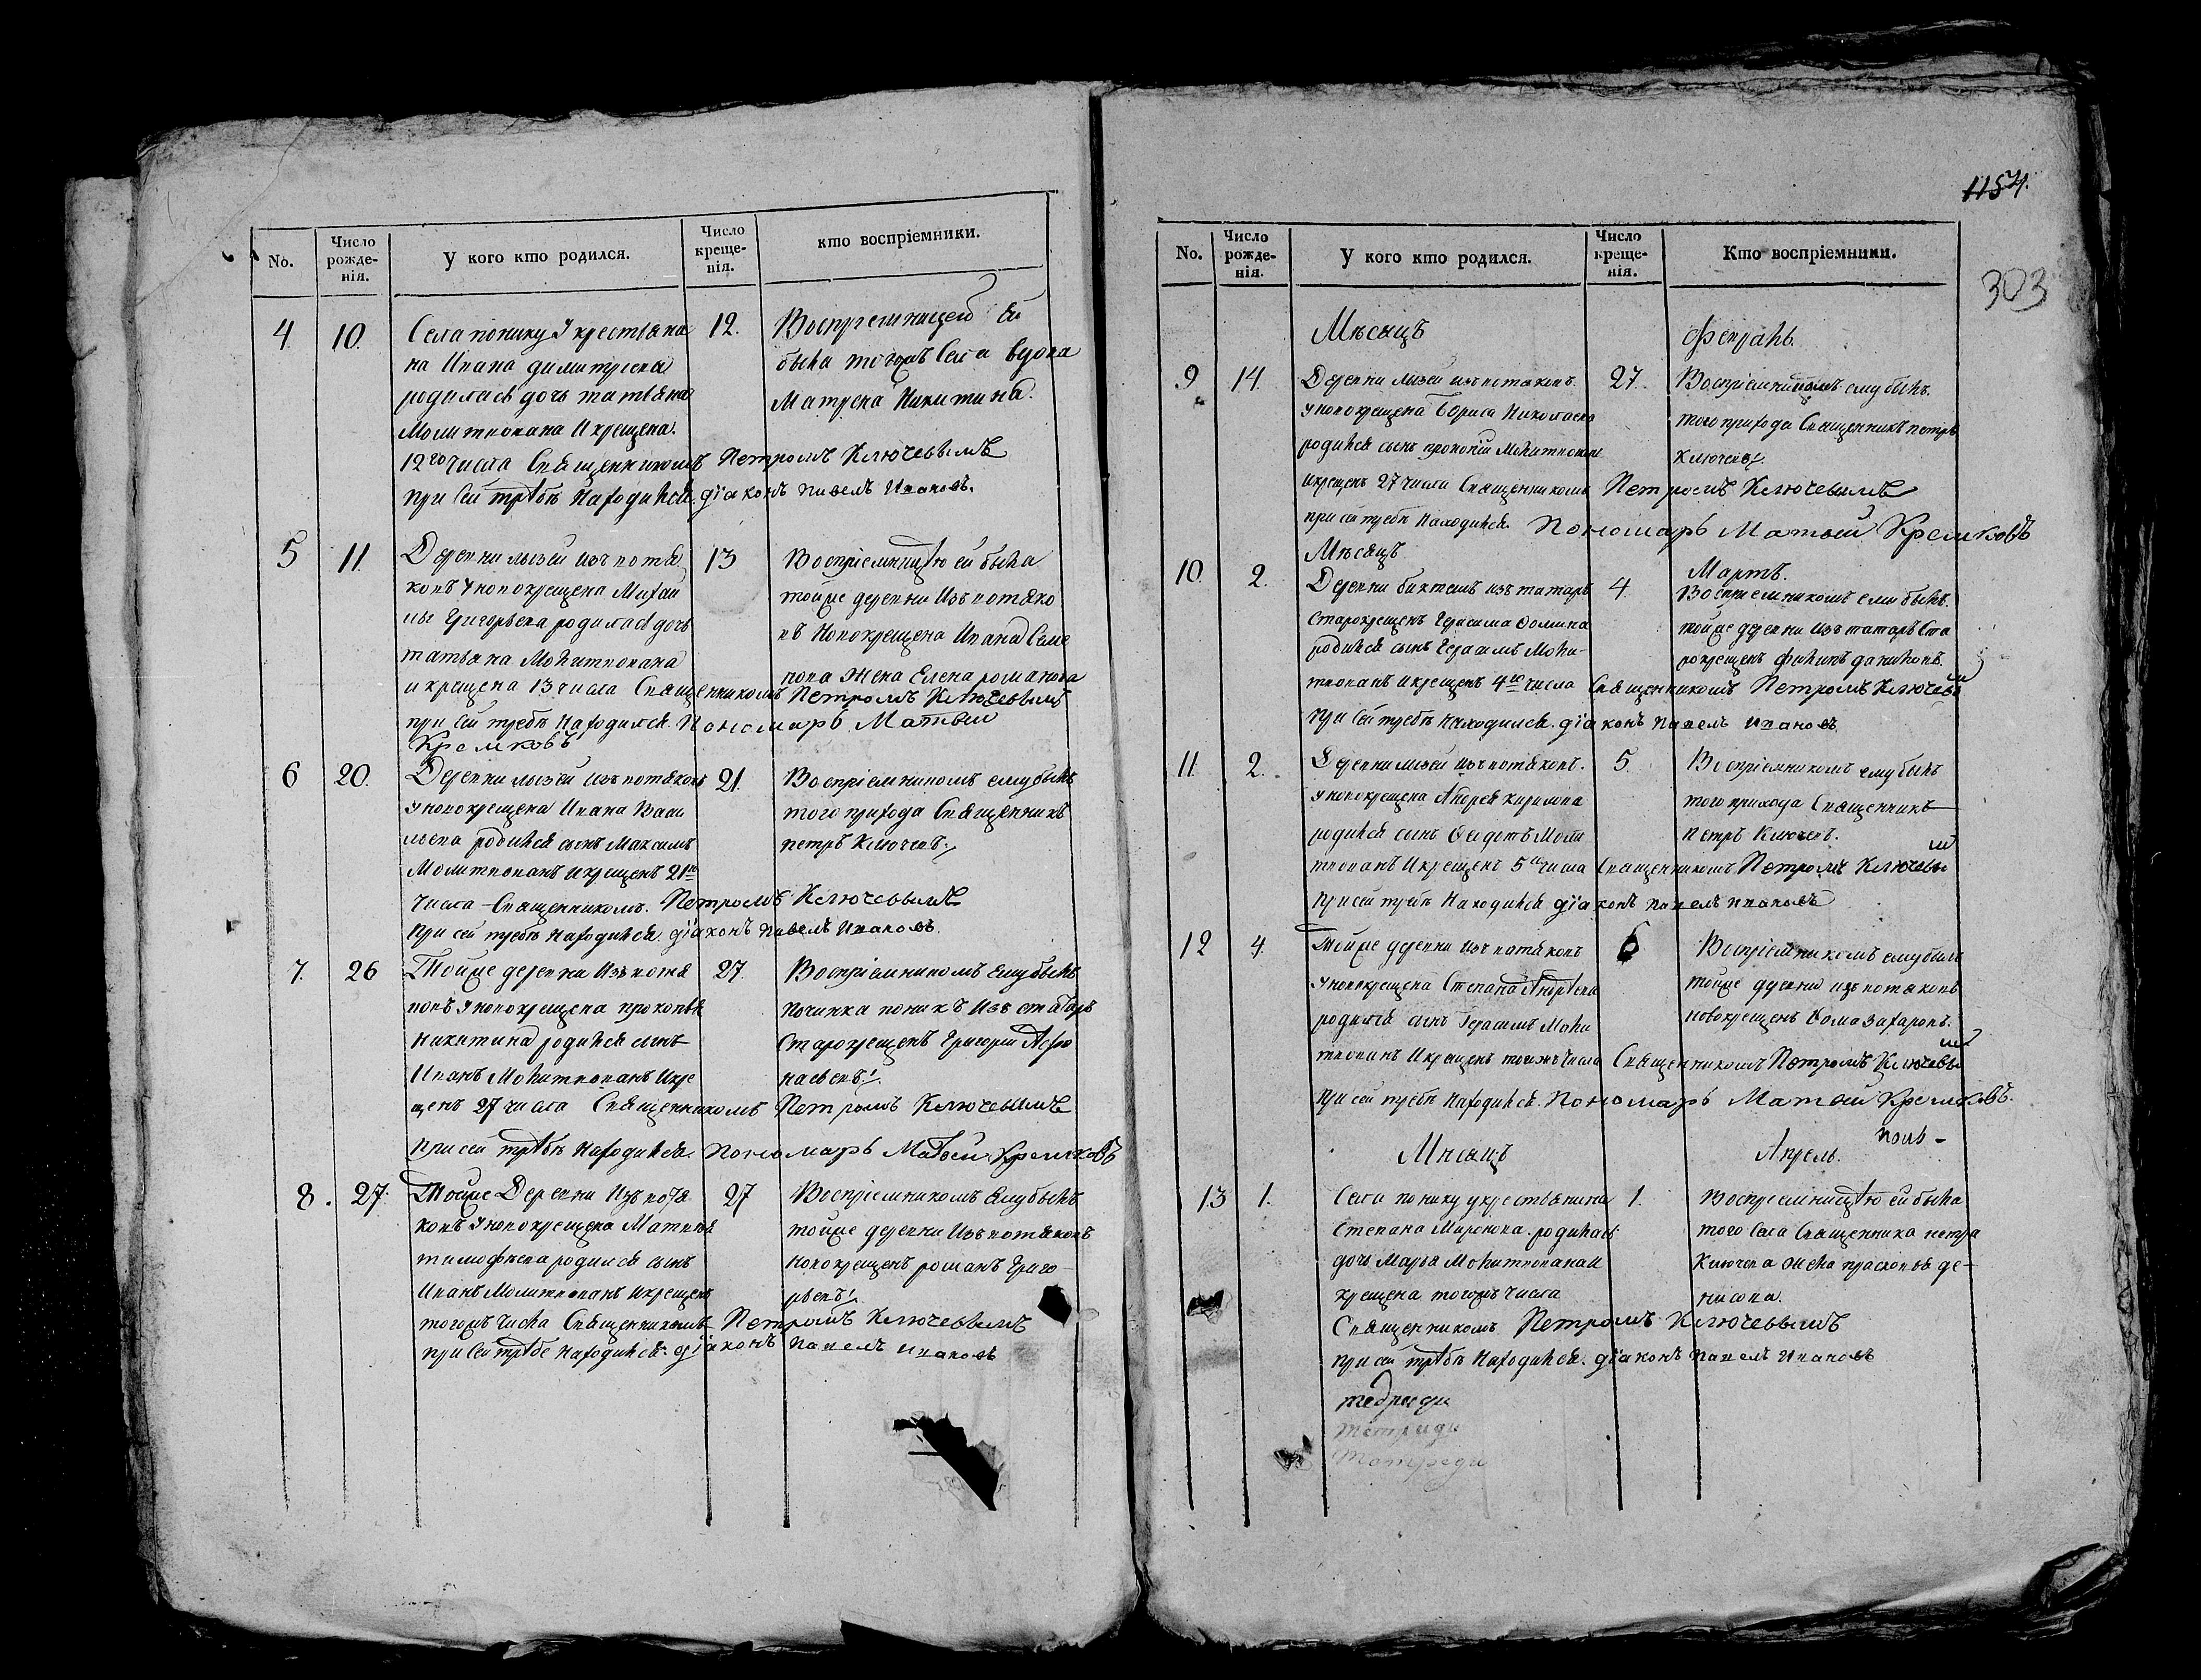 No.
Число рожде-нія.
У кого кто родился.
Число креще-нія.
кто воспріемники.
4
10.
Села понику У крестьяна
на Ивана димитриева
родилась дочь татьяна
Молитвована Икрещена.
12го числа Священникомъ Петромъ Ключевымъ
при сей требѣ Находился діаконъ павелъ Ивановъ.
12.
Воспреемницею ей
была тогожъ Села вдова
Матрена Никитина.
5
11.
Деревни лызей изъ вотя
ковъ У новокрещена Михаи
лы Григорьева родилась дочь
татьяна Молитвована
и крещена 13 числа Священникомъ Петромъ Ключевымъ
при сей требѣ Находился Пономарь Матвей
Кремковъ
13
Воспріемницею ей была
тойже деревни Изъ вотяко
въ Новокрещена Ивана Семе
нова жена Елена романова
6
20.
Деревни лызей Изъ вотяковъ
У новокрещена Ивана Васи
льева родился сынъ Максимъ
Молитвованъ и крещенъ 21го
Числа Священникомъ. Петромъ Ключевымъ
При сей требѣ Находился діаконъ павелъ Ивановъ.
21.
Воспріемникомъ ему былъ
того прихода Священникъ
петръ Ключевъ.
7.
26
Тойже деревни Изъ вотя
ковъ У новокрещена прокопья
Никитина родился сынъ
Иванъ Молитвованъ Икре
щенъ 27 числа Священникомъ Петромъ Ключевымъ
При сей требѣ Находился Пономарь Матвей Кремковъ
27.
Воспріемникомъ Ему былъ
Починка поникъ Изъ татаръ
Старокрещенъ Григорій Афо
насьевъ.
8.
27.
Тойже Деревни Изъ вотя
ковъ У новокрещена Матвея
тимофѣева родился сынъ
Иванъ Молитвованъ Икрещенъ
тогожъ числа Священникомъ Петромъ Ключевымъ
при Сей требе Находился діаконъ павелъ ивановъ
27
Воспріемникомъ Ему былъ
тойже деревни Изъ вотяковъ
Новокрещенъ романъ Григо
рьевъ.
1154.
303
No.
Число рожде-нія.
У кого кто родился.
Число креще-нія.
Кто воспріемники.
Мѣсяцъ
Февраль.
9
14.
Деревни лызей изъ вотяковъ.
У новокрещена Бориса Николаева
родился сынъ прокопій Молитвованъ
икрещенъ 27 числа Священникомъ Петромъ Ключевымъ
при сей требѣ Находился. Пономарь Матвей Кремковъ
27.
Воспріемникомъ ему былъ.
того прихода Священникъ петръ
Ключевъ.
Мѣсяцъ
Мартъ.
10.
2.
Деревни биктешъ изъ татаръ
Старокрещенъ Герасима Фомина
родился сынъ Герасимъ Моли-
твованъ икрещенъ 4го числа Священникомъ Петромъ Ключевы
м
При Сей требѣ Находился. діаконъ павелъ ивановъ
4.
Воспріемникомъ ему былъ.
тойже деревни Изъ татаръ Ста
рокрещенъ филипъ даниловъ.
11.
2.
Деревни лызей изъ вотяковъ.
У новокрещена Андрея кирилова
родился сынъ Федотъ Моли
твованъ Икрещенъ 5го числа Священникомъ Петромъ Ключевы
м
При сей требѣ Находился діаконъ павелъ ивановъ
5.
Воспріемникомъ ему былъ
того прихода Священникъ
Петръ Ключевъ.
12
4.
Тойже деревни изъ вотяковъ
У новокрещена Степана Андреева
родился сынъ Герасимъ Моли
твованъ Икрещенъ Числа Священникомъ Петромъ Ключевы
м
При сей требѣ Находился. Пономарь Матвей Кремковъ.
6
Воспріемникомъ ему былъ
тойже деревни изъ вотяковъ
новокрещенъ Фома Захаровъ.
Мѣсяцъ
Апрель.
13
1.
Села понику у крестьянина
Степана Миронова. родилась
дочь Марья Молитвована и
крещена тогожъ числа
Священникомъ Петромъ Ключевымъ
При сей требѣ Находился. діаконъ павелъ Ивановъ
1.
Воспріемницею ей была
того Села Священника петра
Ключева жена прасковья де-
нисова.